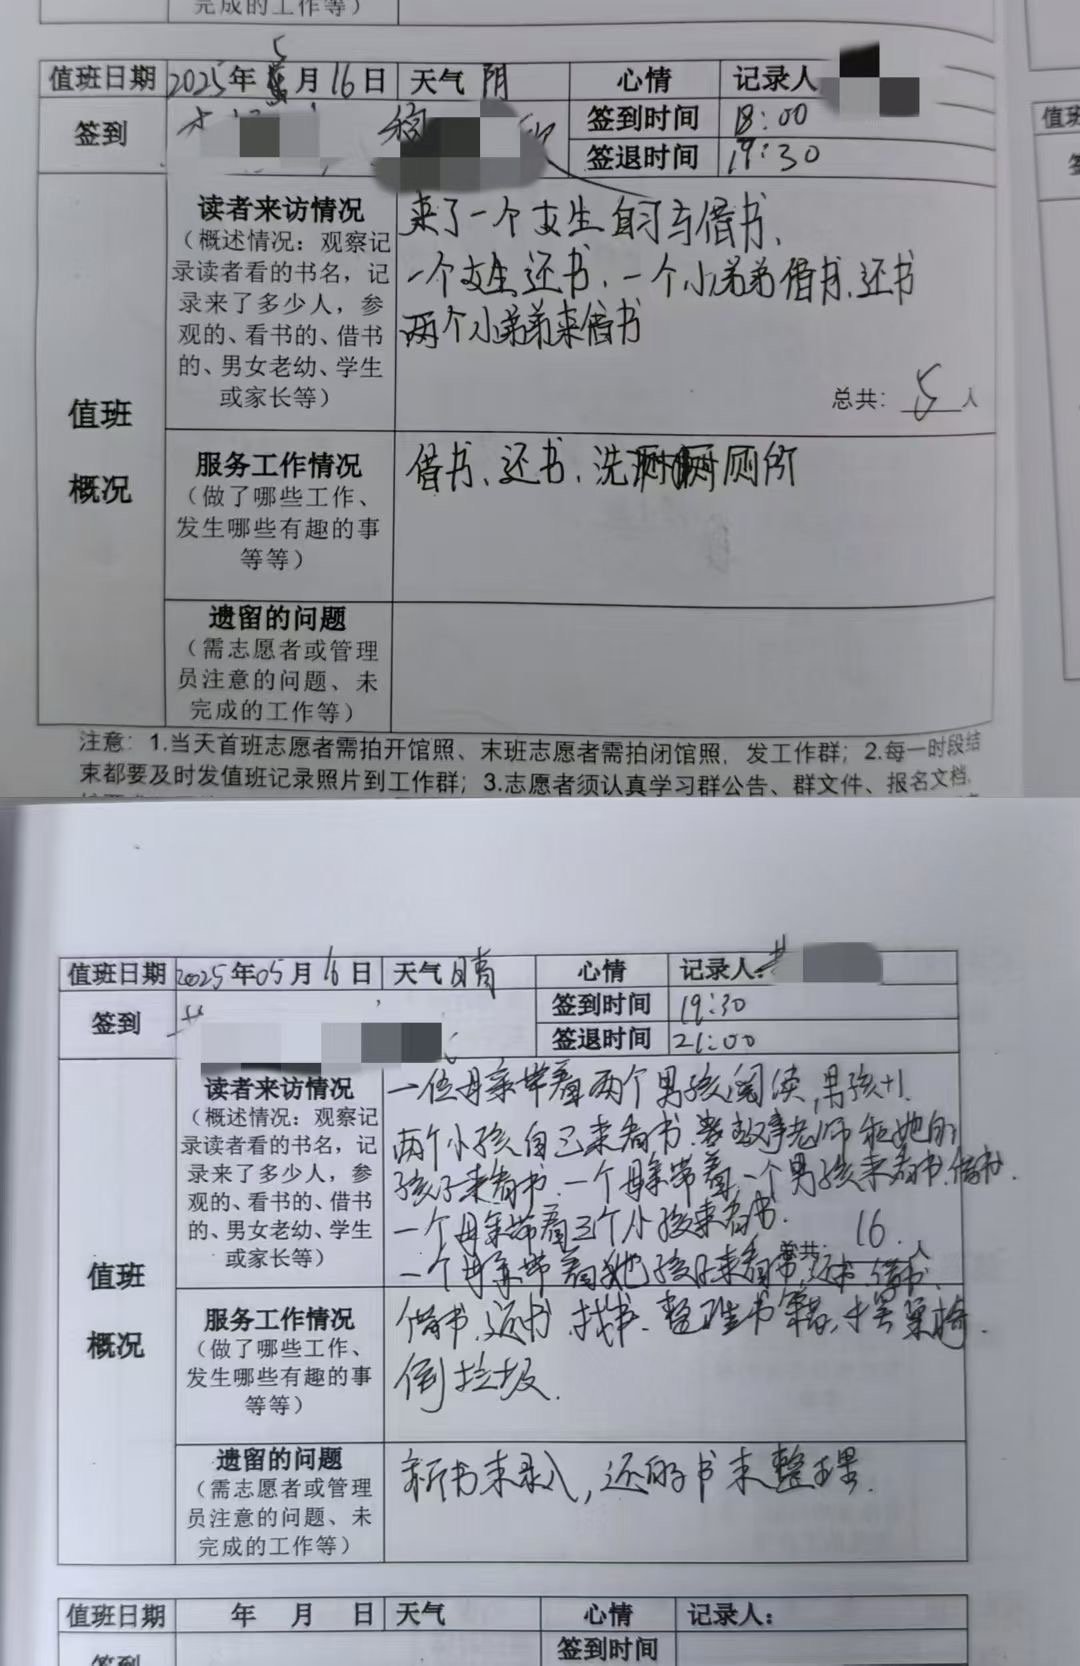 完成的工作等）
值班日期 2025年5月16日 天气 阴 心情 记录人
签到 签到时间 18:00
签退时间 19:30
读者来访情况
（概述情况：观察记
录读者看的书名，记
录来了多少人，参
观的、看书的、借书
的、男女老幼、学生
或家长等）
来了一个女生自习与借书、
一个女生还书、一个小弟弟借书、还书
两个小弟弟来借书
总共：5人
值班
概况
服务工作情况
（做了哪些工作、
发生哪些有趣的事
等等）
借书、还书、洗厕所
遗留的问题
（需志愿者或管理
员注意的问题、未
完成的工作等）
注意：1.当天首班志愿者需拍开馆照、末班志愿者需拍闭馆照，发工作群；2.每一时段结
束都要及时发值班记录照片到工作群；3.志愿者须认真学习群公告、群文件、报名文档，
值班日期 2025年05月16日 天气 晴 心情 记录人：
签到 签到时间 19:30
签退时间 21:00
读者来访情况
（概述情况：观察记
录读者看的书名，记
录来了多少人，参
观的、看书的、借书
的、男女老幼、学生
或家长等）
一位母亲带着两个男孩阅读，男孩+1.
两个小孩自己来看书.故事老师和她的
孩子来看书.一个母亲带着一个男孩来看书、借书.
一个母亲带着三个小孩来看书.
一个母亲带着她孩子来看书、还书、借书.
总共：16人
值班
概况
服务工作情况
（做了哪些工作、
发生哪些有趣的事
等等）
借书、还书、找书、整理书籍，摆桌椅.
倒垃圾.
遗留的问题
（需志愿者或管理
员注意的问题、未
完成的工作等）
新书未录入，还的书未整理.
值班日期 年 月 日 天气 心情 记录人：
签到 签到时间